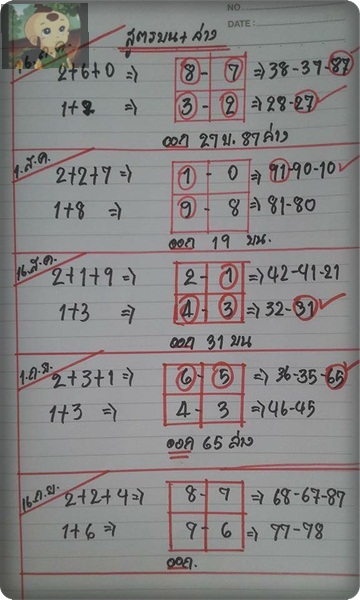 NO
DATE :
สูตรบน + ล่าง
16.ก.ค.
2+6+0 => 8 - 7 => 38-37-87
1+2 => 3 - 2 => 28-27
ออก 27 บ. 87 ล่าง
1.ส.ค.
2+2+7 => 1 - 0 => 91-90-10
1+8 => 9 - 8 => 81-80
ออก 19 บน.
16.ส.ค.
2+1+9 => 2 - 1 => 42-41-21
1+3 => 4 - 3 => 32-31
ออก 31 บน
1.ก.ย.
2+3+1 => 6 - 5 => 36-35-65
1+3 => 4 - 3 => 46-45
ออก 65 ล่าง
16.ก.ย.
2+2+4 => 8 - 7 => 68-67-87
1+6 => 7 - 6 => 77-78
ออก.